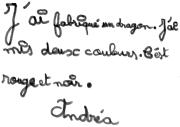 J'ai fabriqué un dragon. J'ai
mis deux couleurs. C'est
rouge et noir.
Andréa